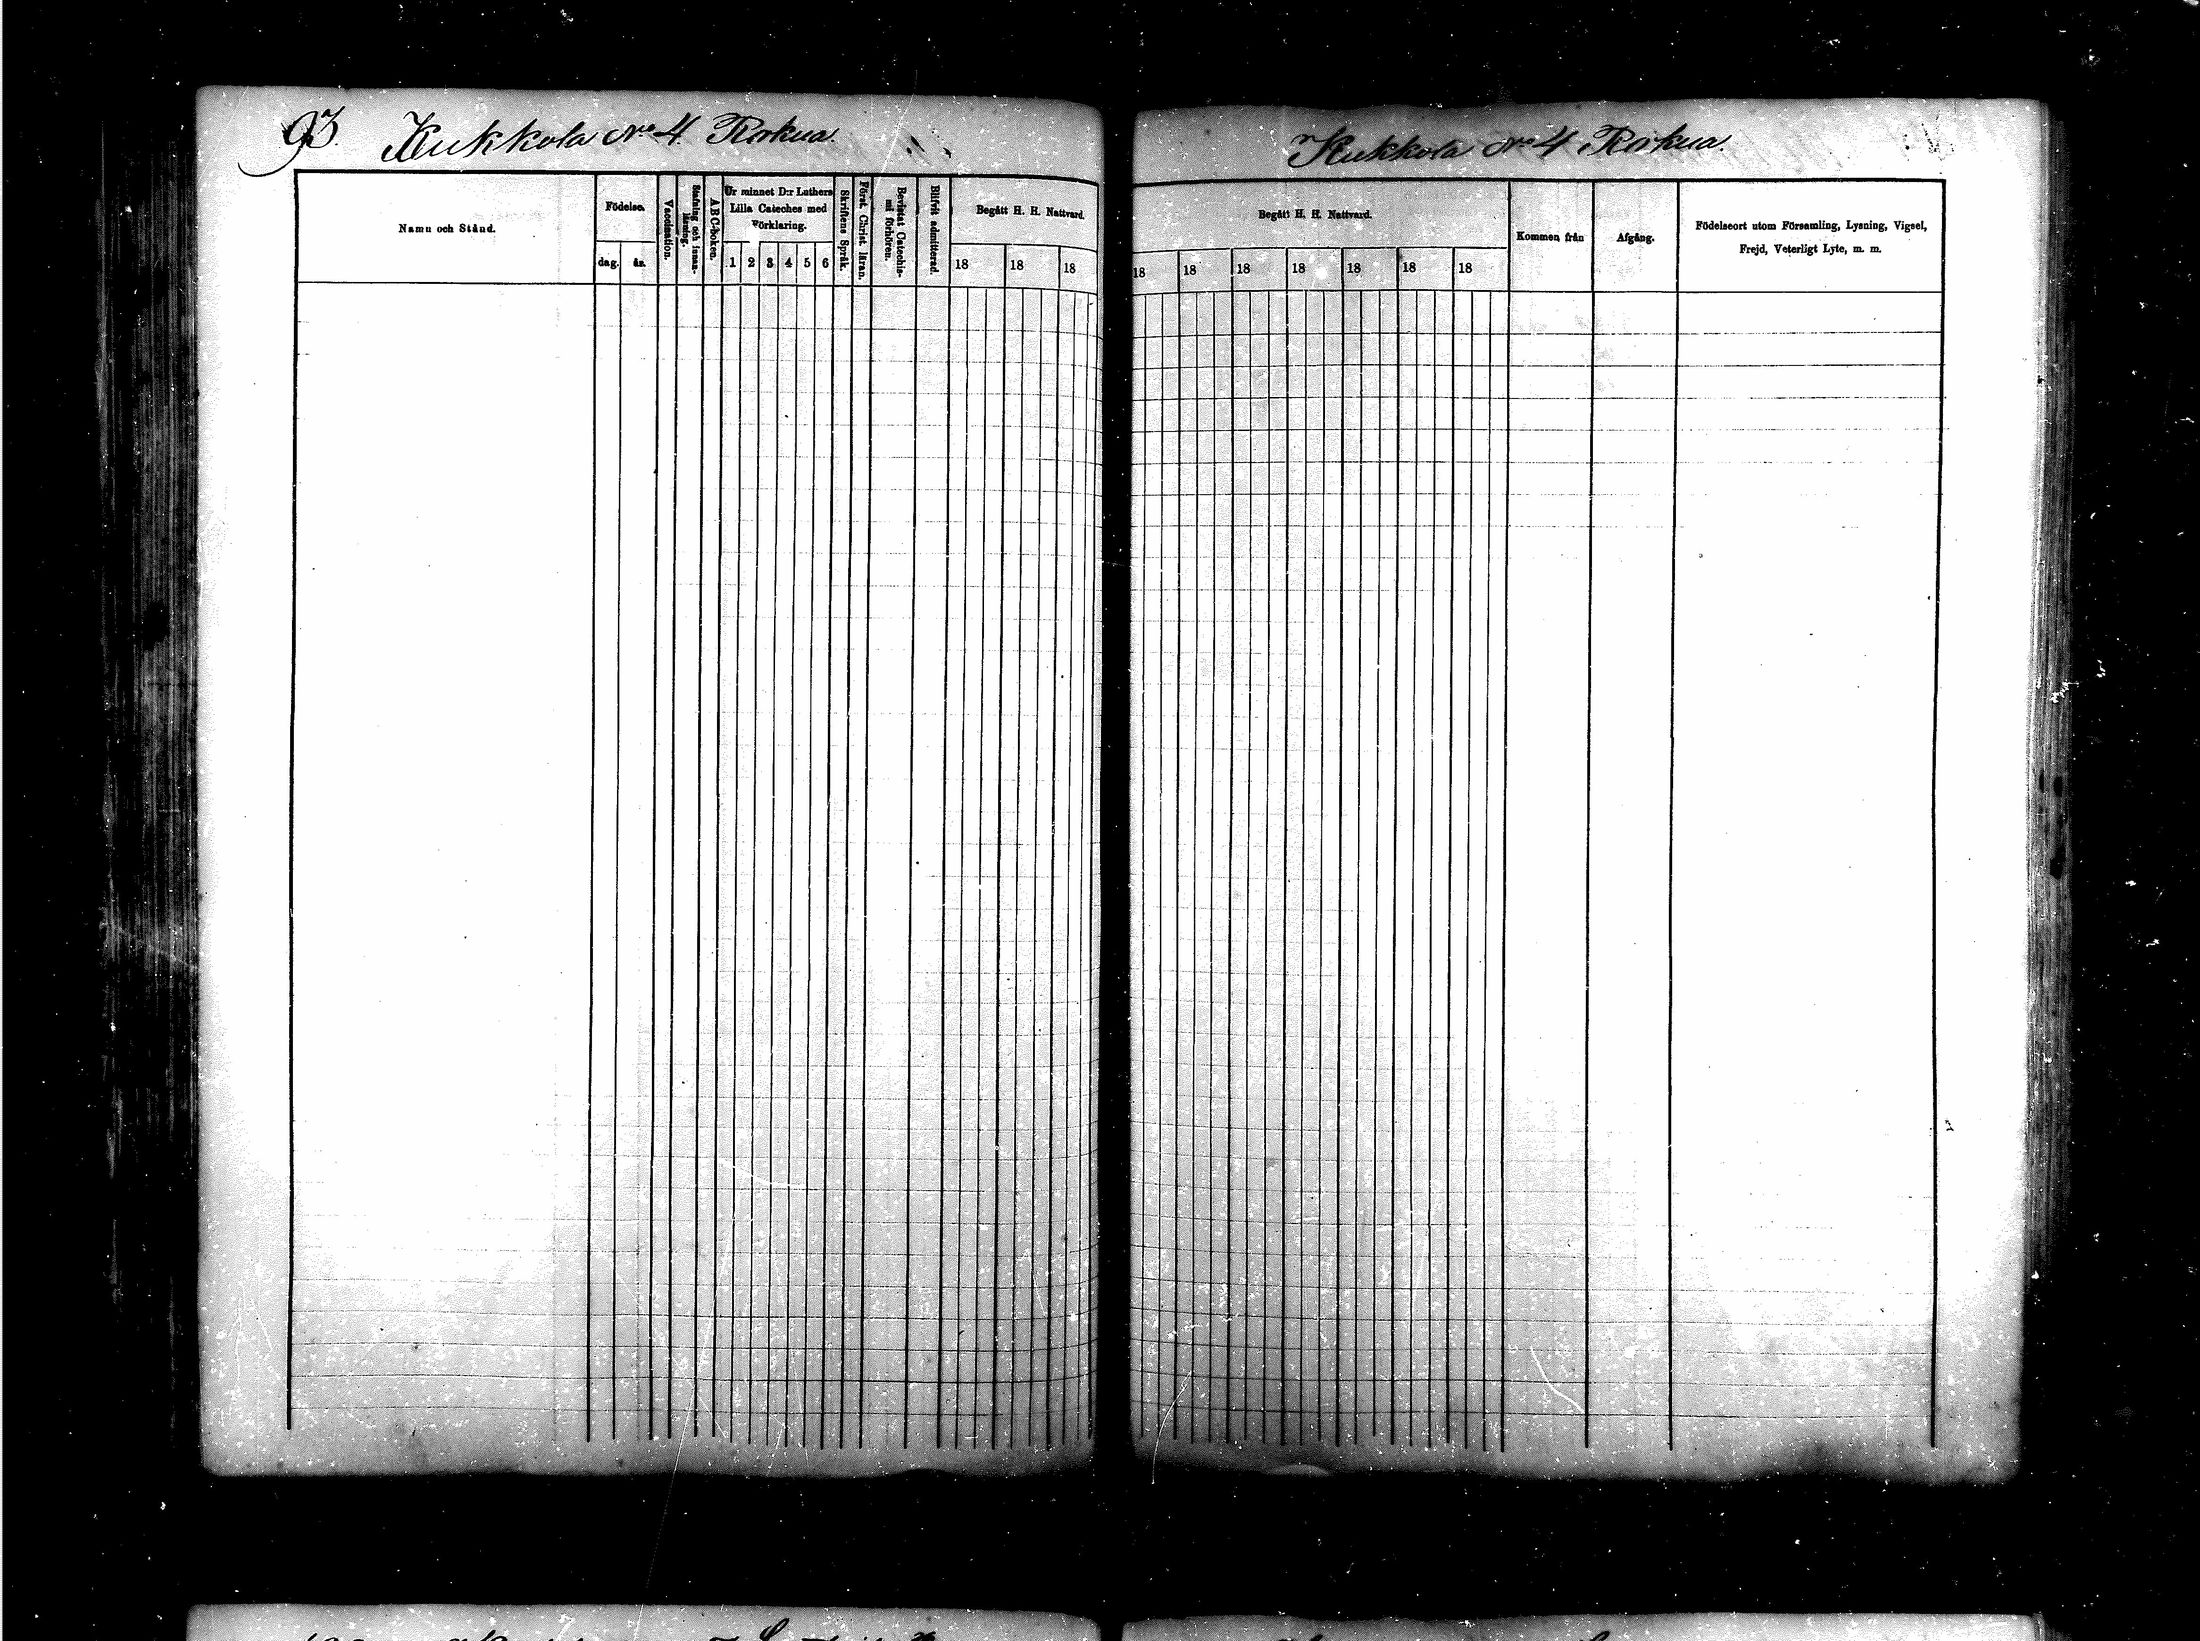 93. Kukkola No 4. Rokua.
Namn och Stånd.
Födelse.
dag.
år.
Vaccination.
Stafning och innan-
läsning.
ABC-boken.
Ur minnet D:r Luthers
Lilla Cateches med
Förklaring.
1 2 3 4 5 6
Skriftens Språk.
Först. Christ. läran.
Bevistat Catechis-
mi förhören.
Blifvit admitterad.
Begått H. H. Nattvard.
18 18 18
Kukkola No 4 Rokua.
Begått H. H. Nattvard.
18 18 18 18 18 18 18
Kommen från
Afgång.
Födelseort utom Församling, Lysning, Vigsel,
Frejd, Veterligt Lyte, m. m.